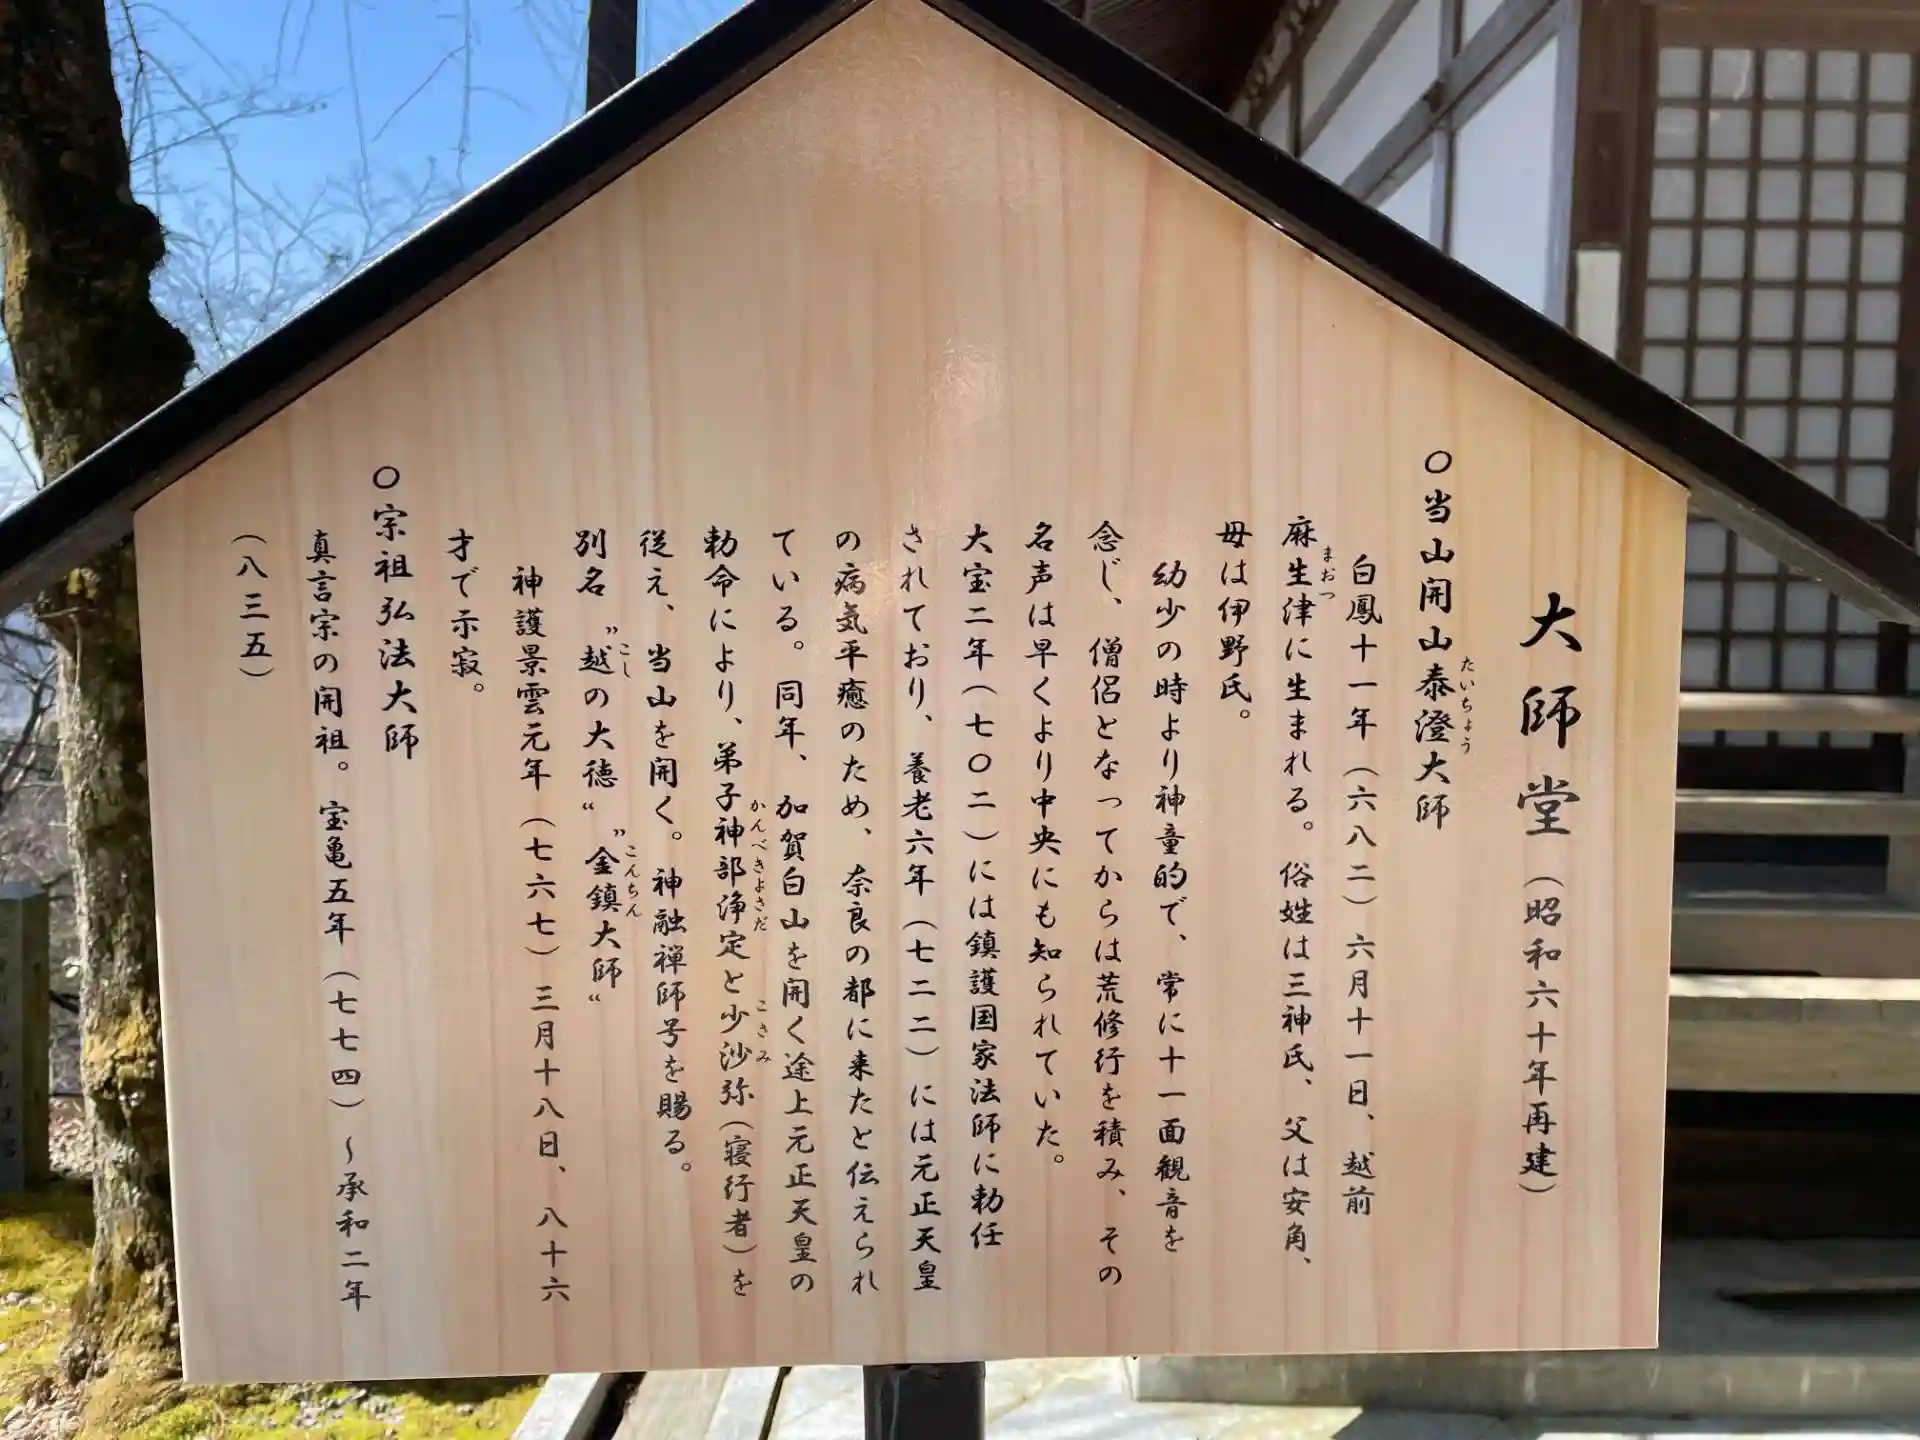 大師堂（昭和六十年再建）
〇当山開山泰澄大師
たいちょう
白鳳十一年（六八二）六月十一日、越前
麻生津に生まれる。俗姓は三神氏、父は安角、
まおつ
母は伊野氏。
幼少の時より神童的で、常に十一面観音を
念じ、僧侶となってからは荒修行を積み、その
名声は早くより中央にも知られていた。
大宝二年（七〇二）には鎮護国家法師に勅任
されており、養老六年（七二二）には元正天皇
の病気平癒のため、奈良の都に来たと伝えられ
ている。同年、加賀白山を開く途上元正天皇の
勅命により、弟子神部浄定と少沙弥（寝行者）を
かんべきよさだ
こさみ
従え、当山を開く。神融禅師号を賜る。
別名〝越の大徳〟〝金鎮大師〟
こし
こんちん
神護景雲元年（七六七）三月十八日、八十六
才で示寂。
〇宗祖弘法大師
真言宗の開祖。宝亀五年（七七四）～承和二年
（八三五）